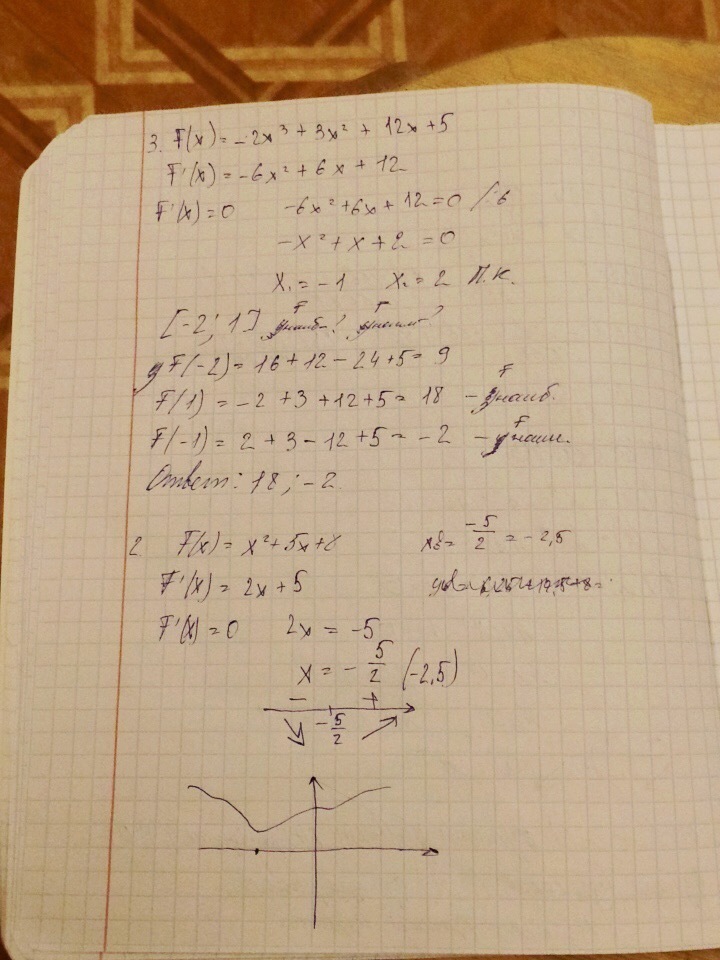 3. F(x) = -2x³ + 3x² + 12x + 5
F'(x) = -6x² + 6x + 12
F'(x) = 0 -6x² + 6x + 12 = 0 /:6
-x² + x + 2 = 0
x₁ = -1 x₂ = 2 П.К.
[-2; 1] Fнаиб? Fнаим?
F(-2) = 16 + 12 - 24 + 5 = 9
F(1) = -2 + 3 + 12 + 5 = 18 - Fнаиб.
F(-1) = 2 + 3 - 12 + 5 = -2 - Fнаим.
Ответ: 18; -2.
2 F(x) = x² + 5x + 8 xв = -5/2 = -2,5
F'(x) = 2x + 5
F'(x) = 0 2x = -5
x = -5/2 (-2,5)
- +
-5/2